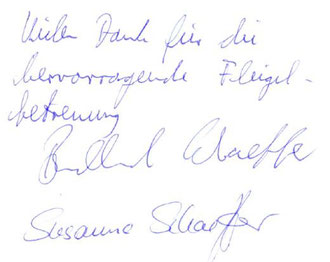 Vielen Dank für die
hervorragende Flügel-
betreuung
Schaeffer
Susanne Schaeffer